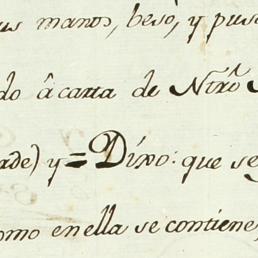 us manos, besò, y puso
do â carta de Ntrô S
arde) y = Dixo: que se
omo en ella se contiene,